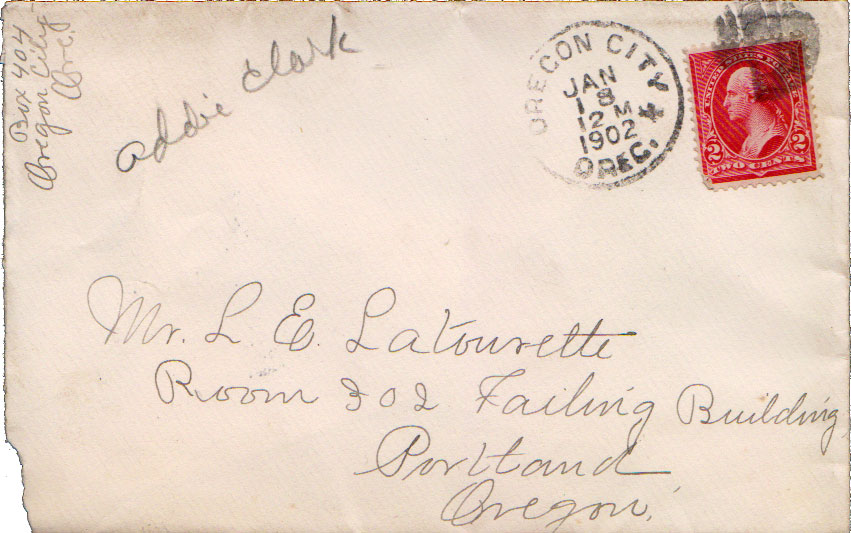 Box 404
Oregon City
Ore.
Addie Clark
OREGON CITY
JAN
18
12 M
1902
OREG.
UNITED STATES POSTAGE
2 2
TWO CENTS
Mr. L. E. Latourette
Room 302 Failing Building
Portland
Oregon.